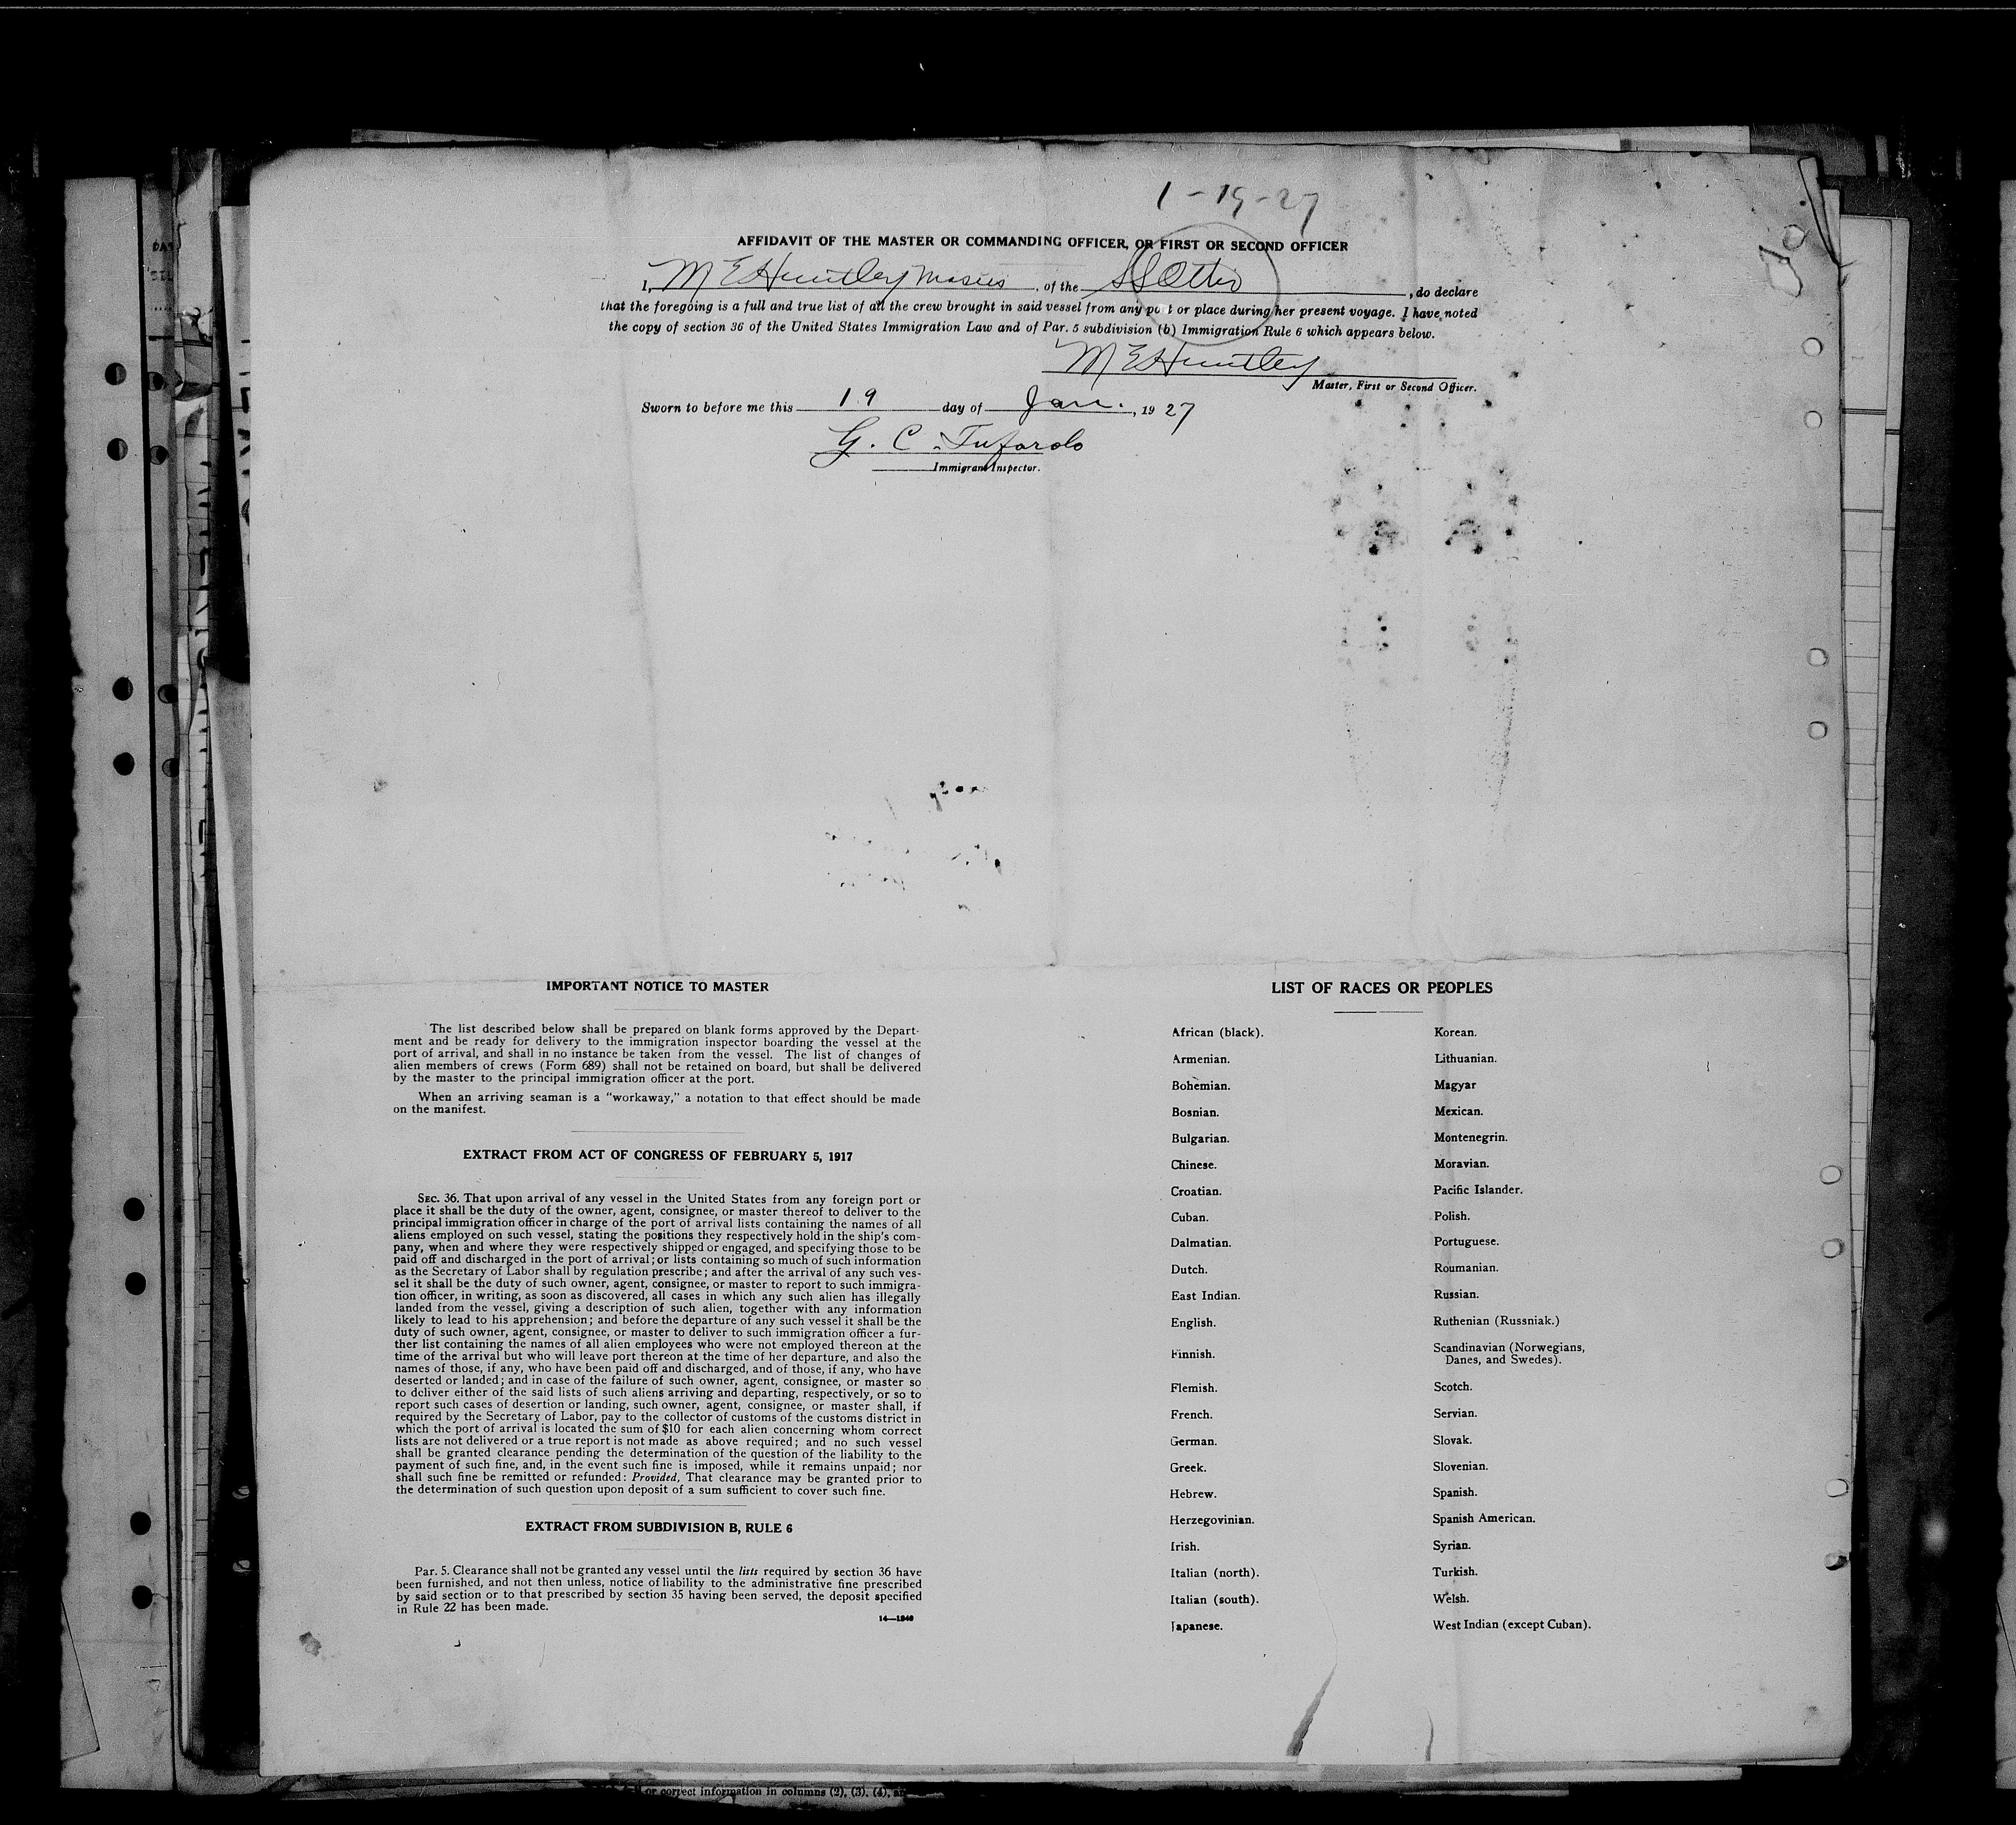 1-19-27
AFFIDAVIT OF THE MASTER OR COMMANDING OFFICER, OR FIRST OR SECOND OFFICER
I, M E Huntley , of the SS , do declare
that the foregoing is a full and true list of all the crew brought in said vessel from any port or place during her present voyage. I have noted
the copy of section 36 of the United States Immigration Law and of Par. 5 subdivision (b) Immigration Rule 6 which appears below.
M E Huntley
Master, First or Second Officer.
Sworn to before me this 19 day of Jan. , 1927
G. C.
Immigrant Inspector.
IMPORTANT NOTICE TO MASTER
The list described below shall be prepared on blank forms approved by the Depart-
ment and be ready for delivery to the immigration inspector boarding the vessel at the
port of arrival, and shall in no instance be taken from the vessel. The list of changes of
alien members of crews (Form 689) shall not be retained on board, but shall be delivered
by the master to the principal immigration officer at the port.
When an arriving seaman is a "workaway," a notation to that effect should be made
on the manifest.
EXTRACT FROM ACT OF CONGRESS OF FEBRUARY 5, 1917
SEC. 36. That upon arrival of any vessel in the United States from any foreign port or
place it shall be the duty of the owner, agent, consignee, or master thereof to deliver to the
principal immigration officer in charge of the port of arrival lists containing the names of all
aliens employed on such vessel, stating the positions they respectively hold in the ship's com-
pany, when and where they were respectively shipped or engaged, and specifying those to be
paid off and discharged in the port of arrival; or lists containing so much of such information
as the Secretary of Labor shall by regulation prescribe; and after the arrival of any such ves-
sel it shall be the duty of such owner, agent, consignee, or master to report to such immigra-
tion officer, in writing, as soon as discovered, all cases in which any such alien has illegally
landed from the vessel, giving a description of such alien, together with any information
likely to lead to his apprehension; and before the departure of any such vessel it shall be the
duty of such owner, agent, consignee, or master to deliver to such immigration officer a fur-
ther list containing the names of all alien employees who were not employed thereon at the
time of the arrival but who will leave port thereon at the time of her departure, and also the
names of those, if any, who have been paid off and discharged, and of those, if any, who have
deserted or landed; and in case of the failure of such owner, agent, consignee, or master so
to deliver either of the said lists of such aliens arriving and departing, respectively, or so to
report such cases of desertion or landing, such owner, agent, consignee, or master shall, if
required by the Secretary of Labor, pay to the collector of customs of the customs district in
which the port of arrival is located the sum of $10 for each alien concerning whom correct
lists are not delivered or a true report is not made as above required; and no such vessel
shall be granted clearance pending the determination of the question of the liability to the
payment of such fine, and, in the event such fine is imposed, while it remains unpaid; nor
shall such fine be remitted or refunded: Provided, That clearance may be granted prior to
the determination of such question upon deposit of a sum sufficient to cover such fine.
EXTRACT FROM SUBDIVISION B, RULE 6
Par. 5. Clearance shall not be granted any vessel until the lists required by section 36 have
been furnished, and not then unless, notice of liability to the administrative fine prescribed
by said section or to that prescribed by section 35 having been served, the deposit specified
in Rule 22 has been made.
LIST OF RACES OR PEOPLES
African (black).
Armenian.
Bohemian.
Bosnian.
Bulgarian.
Chinese.
Croatian.
Cuban.
Dalmatian.
Dutch.
East Indian.
English.
Finnish.
Flemish.
French.
German.
Greek.
Hebrew.
Herzegovinian.
Irish.
Italian (north).
Italian (south).
Japanese.
Korean.
Lithuanian.
Magyar
Mexican.
Montenegrin.
Moravian.
Pacific Islander.
Polish.
Portuguese.
Roumanian.
Russian.
Ruthenian (Russniak.)
Scandinavian (Norwegians,
Danes, and Swedes).
Scotch.
Servian.
Slovak.
Slovenian.
Spanish.
Spanish American.
Syrian.
Turkish.
Welsh.
West Indian (except Cuban).
or correct information in columns (2), (3), (4),